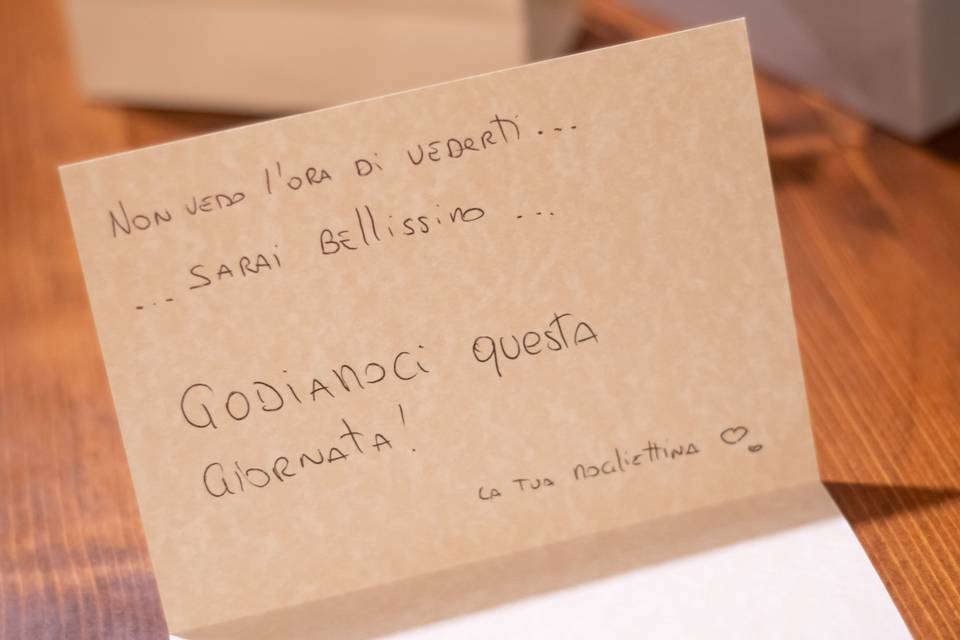 Non vedo l'ora di vederti...
... sarai bellissimo ...
Godiamoci questa
giornata!
La tua mogliettina ♡♡